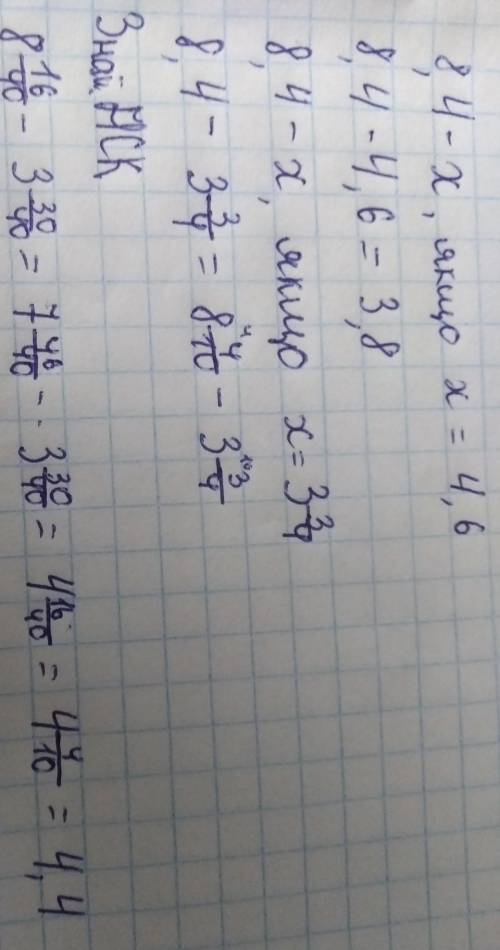 8,4 - x, якщо x = 4,6
8,4 - 4,6 = 3,8
8,4 - x, якщо x = 3 3/4
8,4 - 3 3/4 = 8 4/10 - 3 3/4
Знай. НСК
8 16/40 - 3 30/40 = 7 46/40 - 3 30/40 = 4 16/40 = 4 4/10 = 4,4